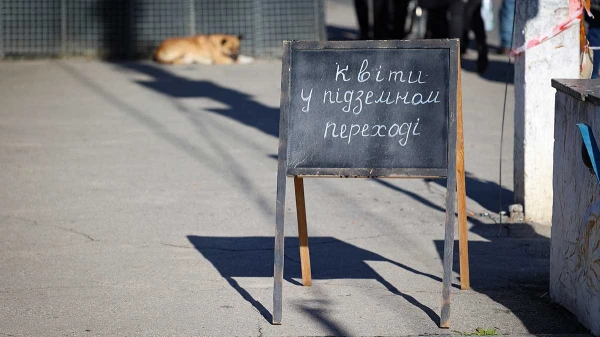 Квіти
у підземном
переході